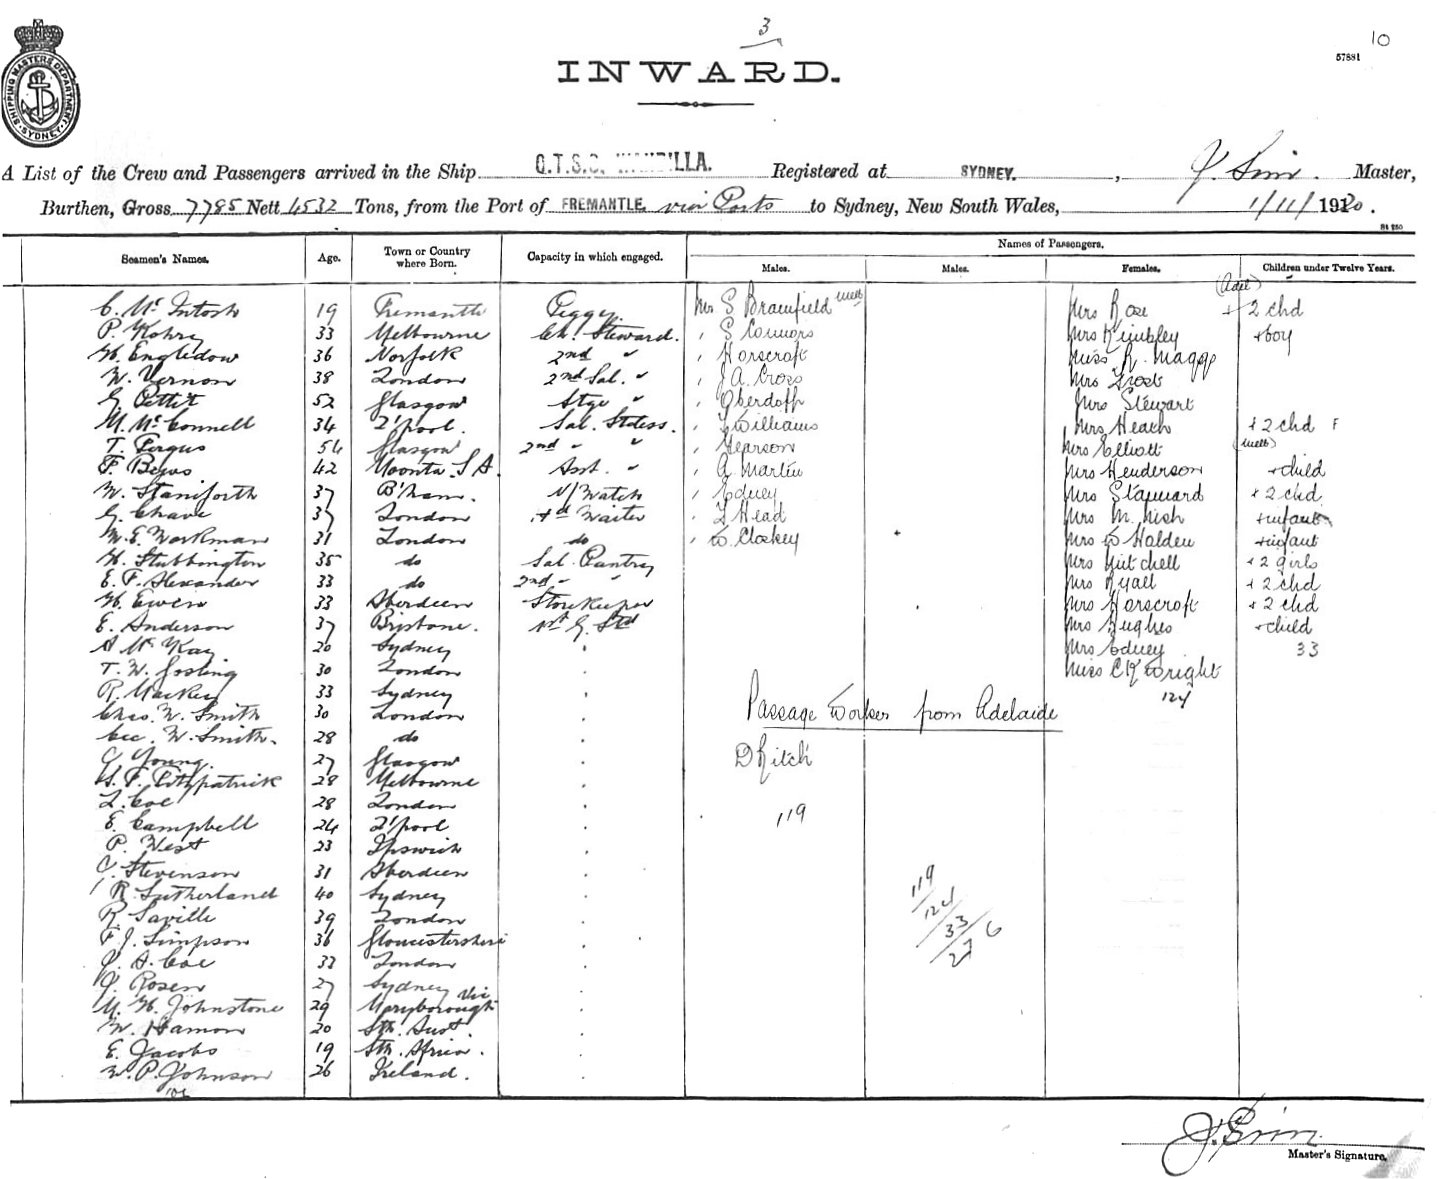 3
10
57881
SHIPPING MASTERS DEPARTMENT SYDNEY
INWARD.
A List of the Crew and Passengers arrived in the Ship Q.T.S.S. LLA. Registered at SYDNEY. , J. Sim . Master,
Burthen, Gross 7785 Nett 4532 Tons, from the Port of FREMANTLE via Ports to Sydney, New South Wales, 1/11/1920.
St 250
Seamen's Names. Age. Town or Country where Born. Capacity in which engaged. Names of Passengers.
Males. Males. Females. Children under Twelve Years.
C. McIntosh 19 Fremantle Peggy Mr S Bramfield Melb Mrs Rose (Adel) + 2 chd
P. 33 Melbourne Ch. Steward. " S Connors Mrs Kimbley + boy
H. Engledow 36 Norfolk 2nd " " Horscroft Miss R. Maggs
W. Vernon 38 London 2nd Sal. " " J A Cross Mrs Frost
G Pettit 52 Glasgow Stge " " Oberdoff Mrs Stewart
M. McConnell 34 L'pool. Sal. Stdess. " Williams Mrs Heath + 2 chd F
T. Fergus 54 Glasgow 2nd " " " Gearson Mrs Elliott (Melb)
F. 42 Moonta S.A. Asst. " " A Martin Mrs Henderson + child
W. Staniforth 37 B'ham. N/Watch " Edney Mrs Stannard + 2 chd
G. Chave 37 London Hd Waiter " Head Mrs M. Nish + infant
W. E. Workman 31 London do " W Closkey Mrs W Halden + infant
H. Stubbington 35 do Sal. Pantry Mrs Mitchell + 2 girls
E. F. Alexander 33 do 2nd " " Mrs Ryall + 2 chd
H. Ewen 33 Aberdeen Storekeeper Mrs Horscroft + 2 chd
E. Anderson 37 Brisbane. Std Mrs Hughes + child
A McKay 20 Sydney Mrs Edney 33
T. W. Josling 30 London Miss C K Wright
R. Mackey 33 Sydney 124
Chas. W. Smith 30 London Passage Worker from Adelaide
Cec. W. Smith. 28 do
C Young. 27 Glasgow D Kitch
G. F. Fitzpatrick 28 Melbourne
L. Coe 28 London
E. Campbell 24 L'pool 119
P. West 23 Ipswich
C. Stevenson 31 Aberdeen 119
R. Sutherland 40 Sydney 124
R Saville 39 London 33
F. J. Simpson 36 Gloucestershire 276
A. Coe 33 London
J. Rosen 27 Sydney
M. H. Johnstone 29 Maryborough Vic
W. Hamon 20 Sth. Aust.
E. Jacobs 19 Sth. Africa.
W. P. Johnson 26 Ireland.
J. Sim
Master's Signature.